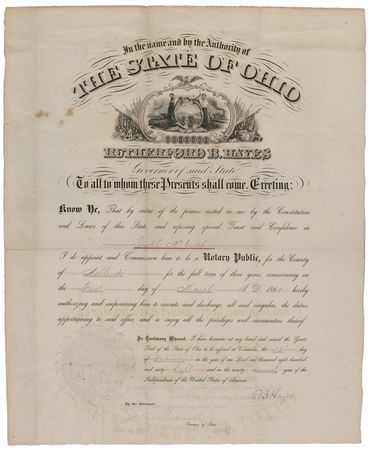 In the name and by the Authority of
THE STATE OF OHIO
RUTHERFORD B. HAYES
Governor of said State
To all to whom these Presents shall come, Greeting:
Know Ye, That by virtue of the powers vested in me by the Constitution
and Laws of this State and reposing special Trust and Confidence in
Joseph
I do appoint and Commission him to be a Notary Public, for the County
of for the full term of three years, commencing on
the day of March A.D. 186 hereby
authorizing and empowering him to execute and discharge, all and singular, the duties
appertaining to said office, and to enjoy all the privileges and immunities thereof.
In Testimony Whereof, I have hereunto set my hand and caused the Great
Seal of the State of Ohio to be affixed at Columbus, the day
of in the year of our Lord one thousand eight hundred
and sixty eight and in the ninety second year of the
Independence of the United States of America.
R B Hayes
By the Governor:
Secretary of State